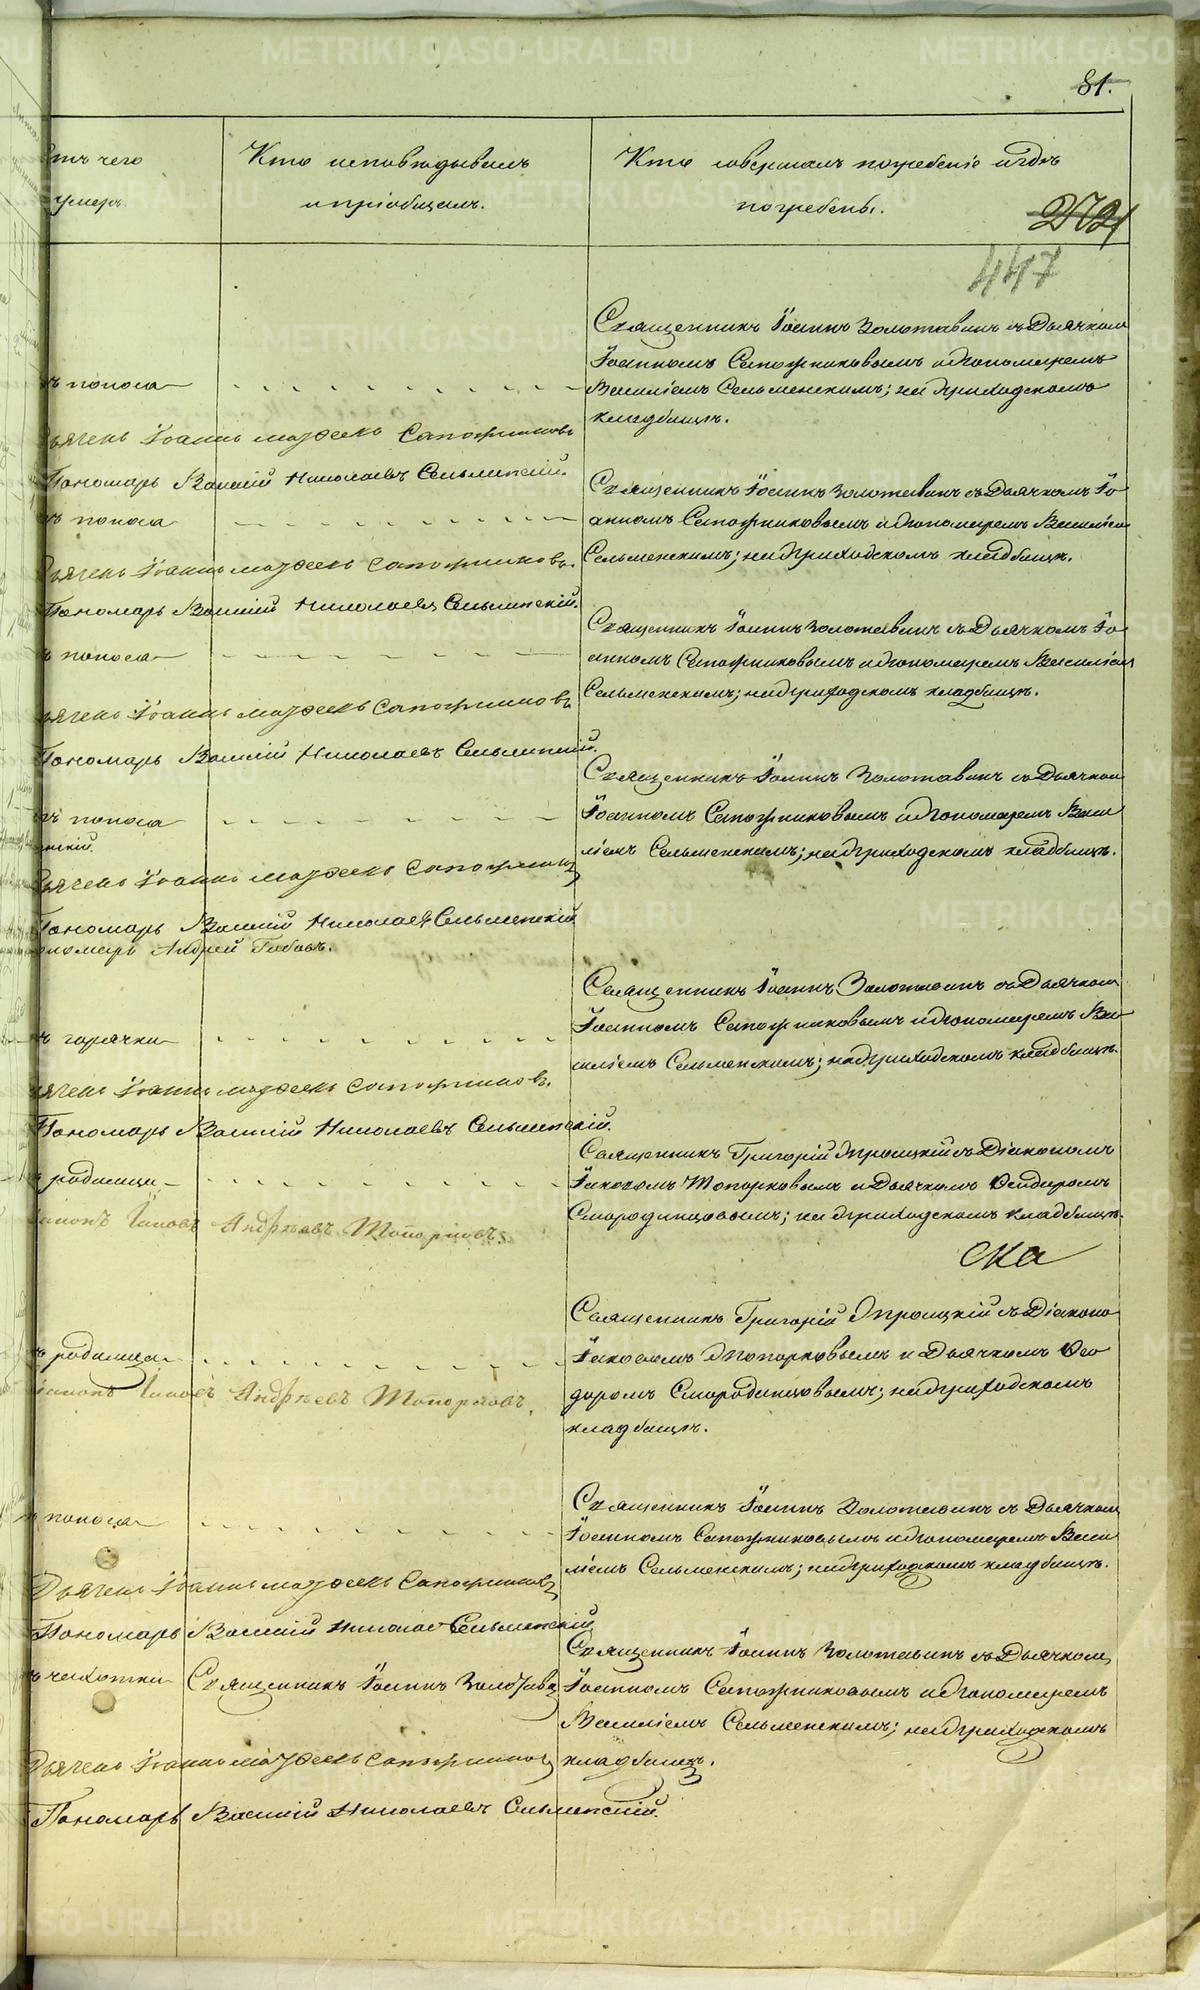 81.
отъ чего
умеръ.
Кто исповѣдывалъ
и пріобщалъ.
Кто совершалъ погребеніе и гдѣ
погребены.
447
Священникъ Іоаннъ Золотавинъ съ Дьячкомъ
Іоанномъ Сапожниковымъ и Пономаремъ
Василіемъ Сельменскимъ; на Приходскомъ
кладбищѣ.
ъ поноса
Дьячекъ Іоаннъ Сапожниковъ
Пономарь Василій Николаевъ Сельменскій.
Священникъ Іоаннъ Золотавинъ съ Дьячкомъ Іо
анномъ Сапожниковымъ и Пономаремъ Василіем
Сельменскимъ; на Приходскомъ кладбищѣ.
ъ поноса
Дьячекъ Іоаннъ Сапожниковъ.
Пономарь Василій Николаевъ Сельменскій.
Священникъ Іоаннъ Золотавинъ съ Дьячкомъ Іо
анномъ Сапожниковымъ и Пономаремъ Василіем
Сельменскимъ; на Приходскомъ кладбищѣ.
ъ поноса
ьячекъ Іоаннъ Сапожниковъ
Пономарь Василій Николаевъ Сельменскій.
Священникъ Іоаннъ Золотавинъ съ Дьячком
Іоанномъ Сапожниковымъ и Пономаремъ Васи
ліемъ Сельменскимъ; на Приходскомъ кладбищѣ.
ъ поноса
нскій.
Дьячекъ Іоаннъ Сапожник
Пономарь Василій Николаевъ Сельменскій
ономарь Андрей
Священникъ Іоаннъ Золотавинъ съ Дьячком
Іоанномъ Сапожниковымъ и Пономаремъ Ва
силіемъ Сельменскимъ; на Приходскомъ кладбищѣ.
ъ горячки
ьячекъ Іоаннъ Сапожниковъ.
Пономарь Василій Николаевъ Сельменскій.
Священникъ Григорій Троицкій съ Діакономъ
Іаковомъ Топорковымъ и Дьячкомъ Ѳеодоромъ
Смородинцовымъ; на Приходскомъ кладбищѣ.
ъ родимца
іаконъ Іаковъ Андрѣевъ Топорковъ.
Священникъ Григорій Троицкій съ Діаконо
Іаковомъ Топорковымъ и Дьячкомъ Ѳео
доромъ Смородинцовымъ; на Приходскомъ
кладбищѣ.
ъ родимца
іаконъ Іаковъ Андрѣевъ Топорковъ.
Священникъ Іоаннъ Золотавинъ съ Дьячком
Іоанномъ Сапожниковымъ и Пономаремъ Васи
ліемъ Сельменскимъ; на Приходскомъ кладбищѣ.
ъ поноса
Дьячекъ Іоаннъ Сапожниковъ
Пономарь Василій Николаевъ Сельменскій.
Священникъ Іоаннъ Золотавинъ съ Дьячком
ъ чахотки
Священникъ Іоаннъ Золотавин
Іоанномъ Сапожниковымъ и Пономаремъ
Василіемъ Сельменскимъ; на Приходскомъ
кладбищѣ.
Дьячекъ Іоаннъ Сапожников
Пономарь Василій Николаевъ Сельменскій.
METRIKI.GASO-URAL.RU